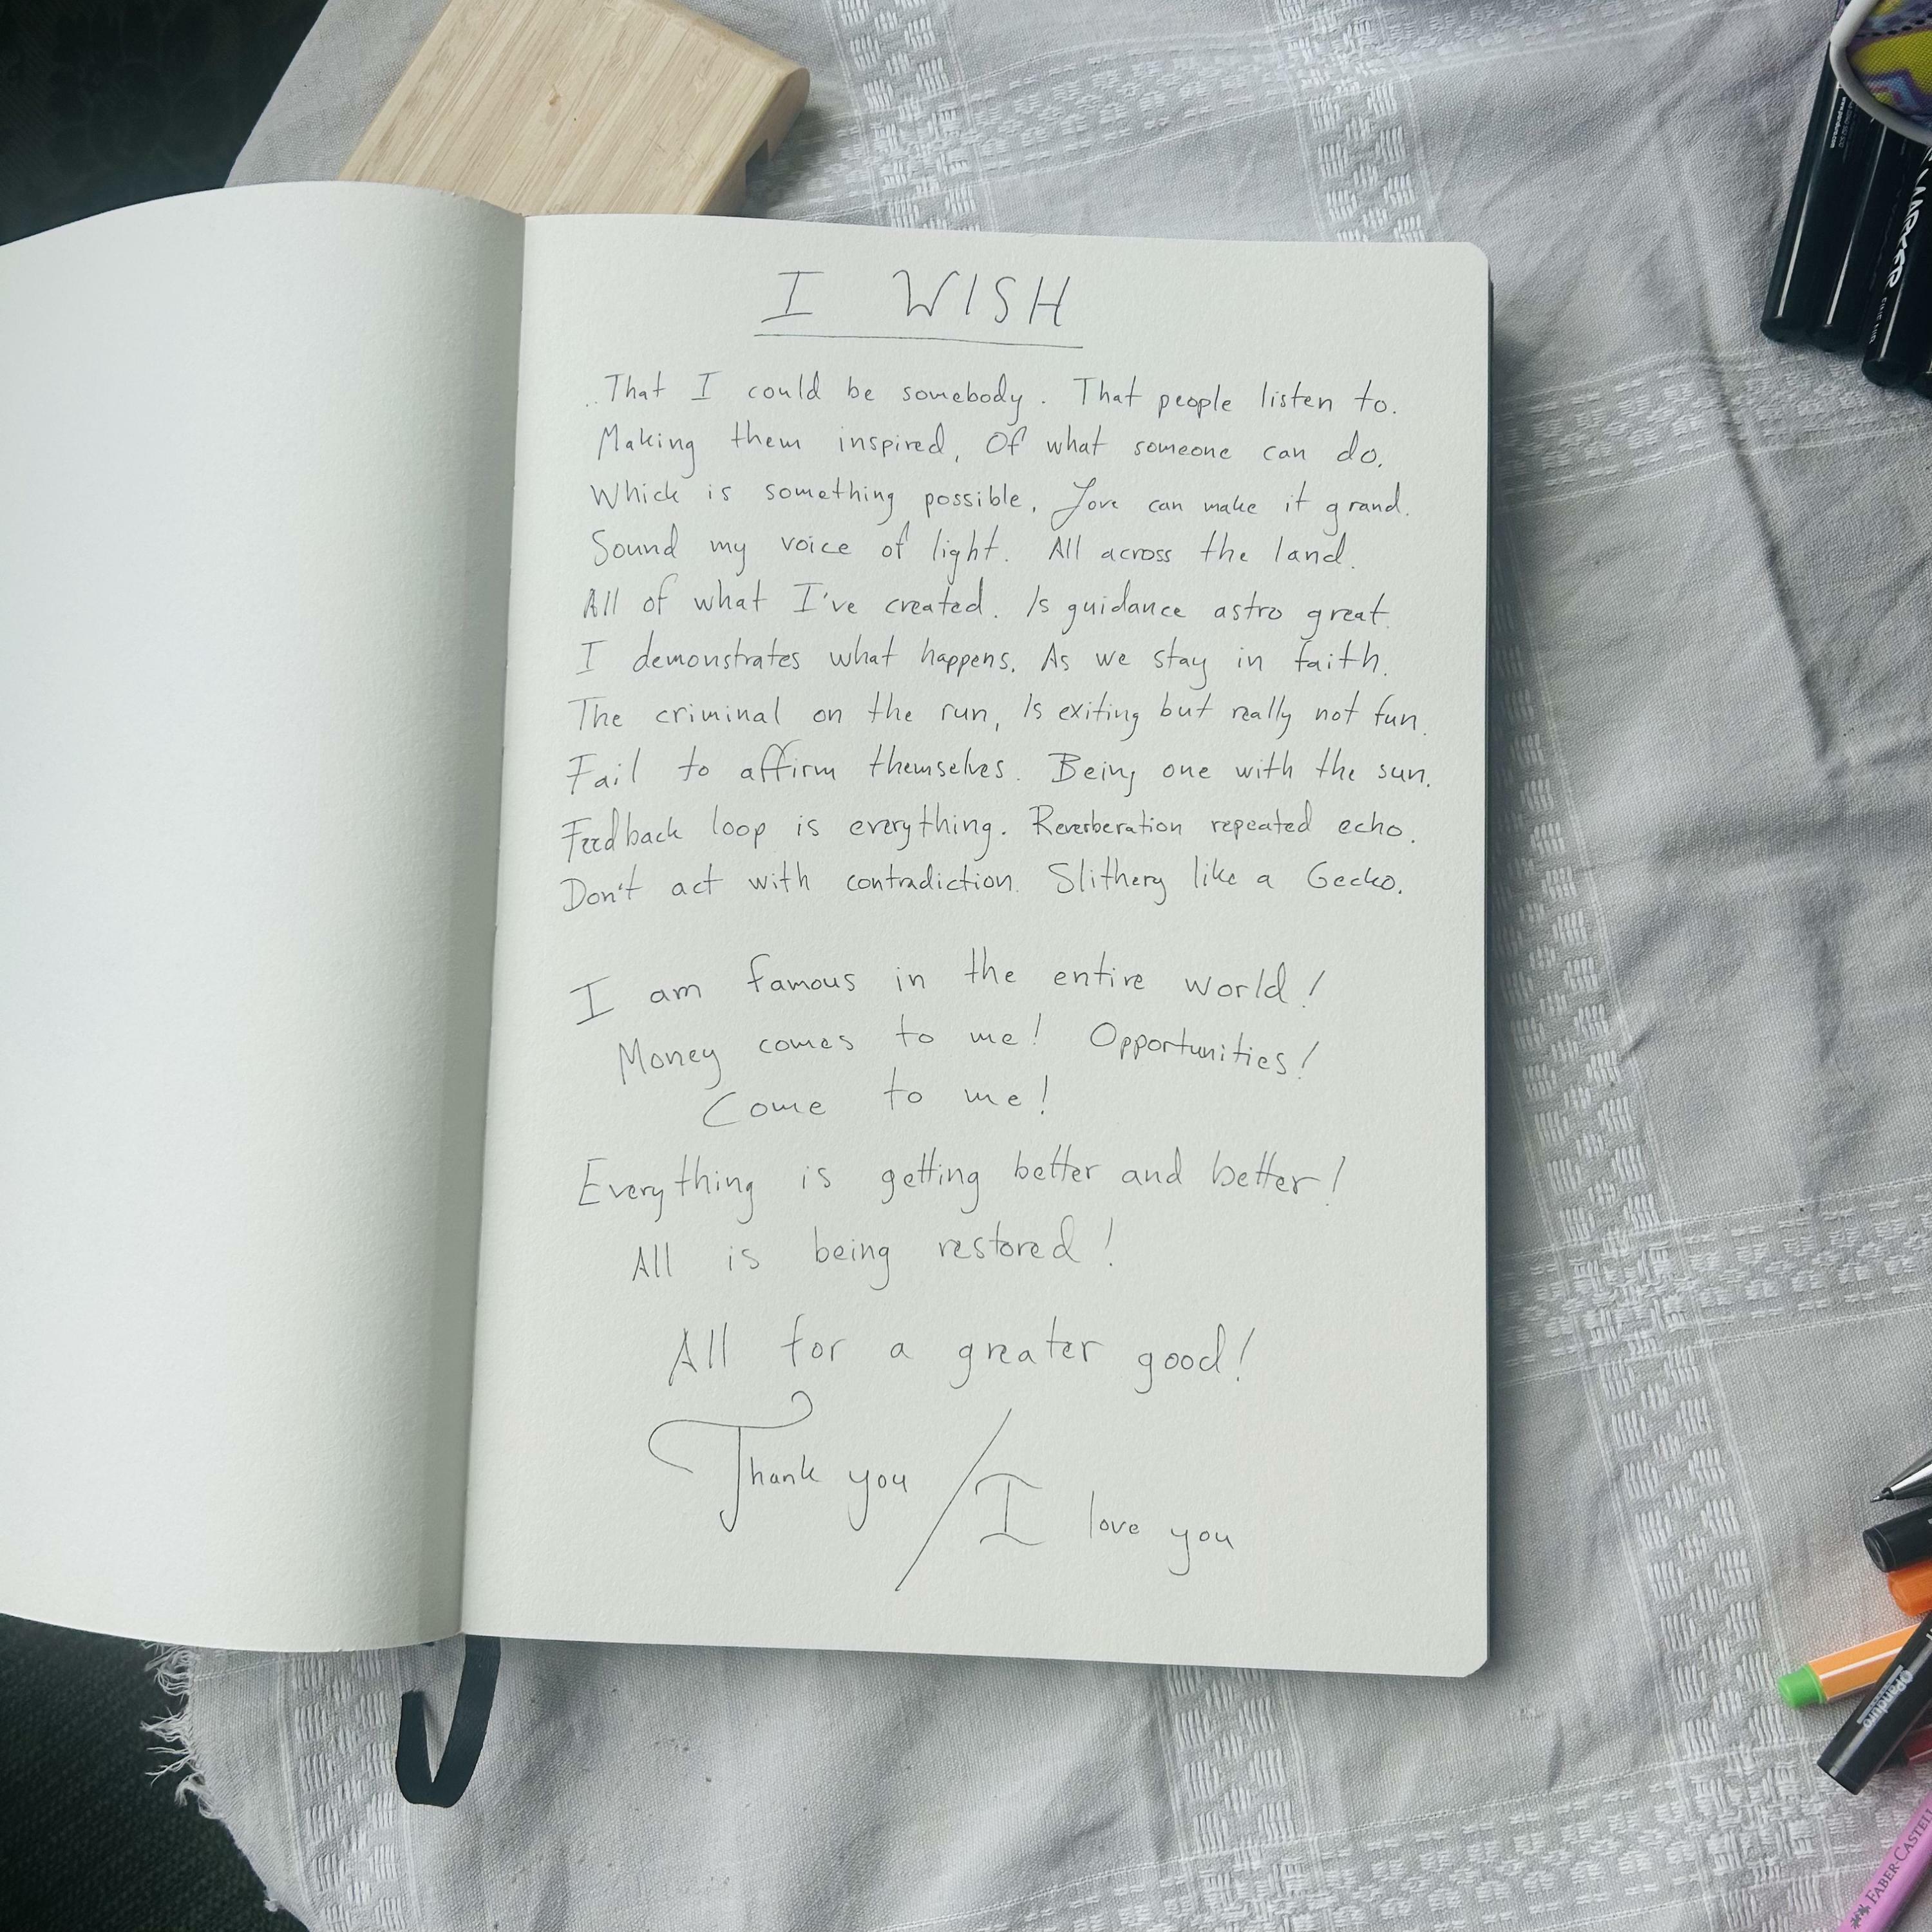 I WISH
..That I could be somebody. That people listen to.
Making them inspired, Of what someone can do.
Which is something possible, Love can make it grand.
Sound my voice of light. All across the land.
All of what I've created. Is guidance astro great.
I demonstrates what happens. As we stay in faith.
The criminal on the run, Is exiting but really not fun.
Fail to affirm themselves. Being one with the sun.
Feedback loop is everything. Reverberation repeated echo.
Don't act with contradiction. Slithery like a Gecko.
I am famous in the entire world!
Money comes to me! Opportunities!
Come to me!
Everything is getting better and better!
All is being restored!
All for a greater good!
Thank you / I love you
MARKER
Panduro
FABER CASTELL